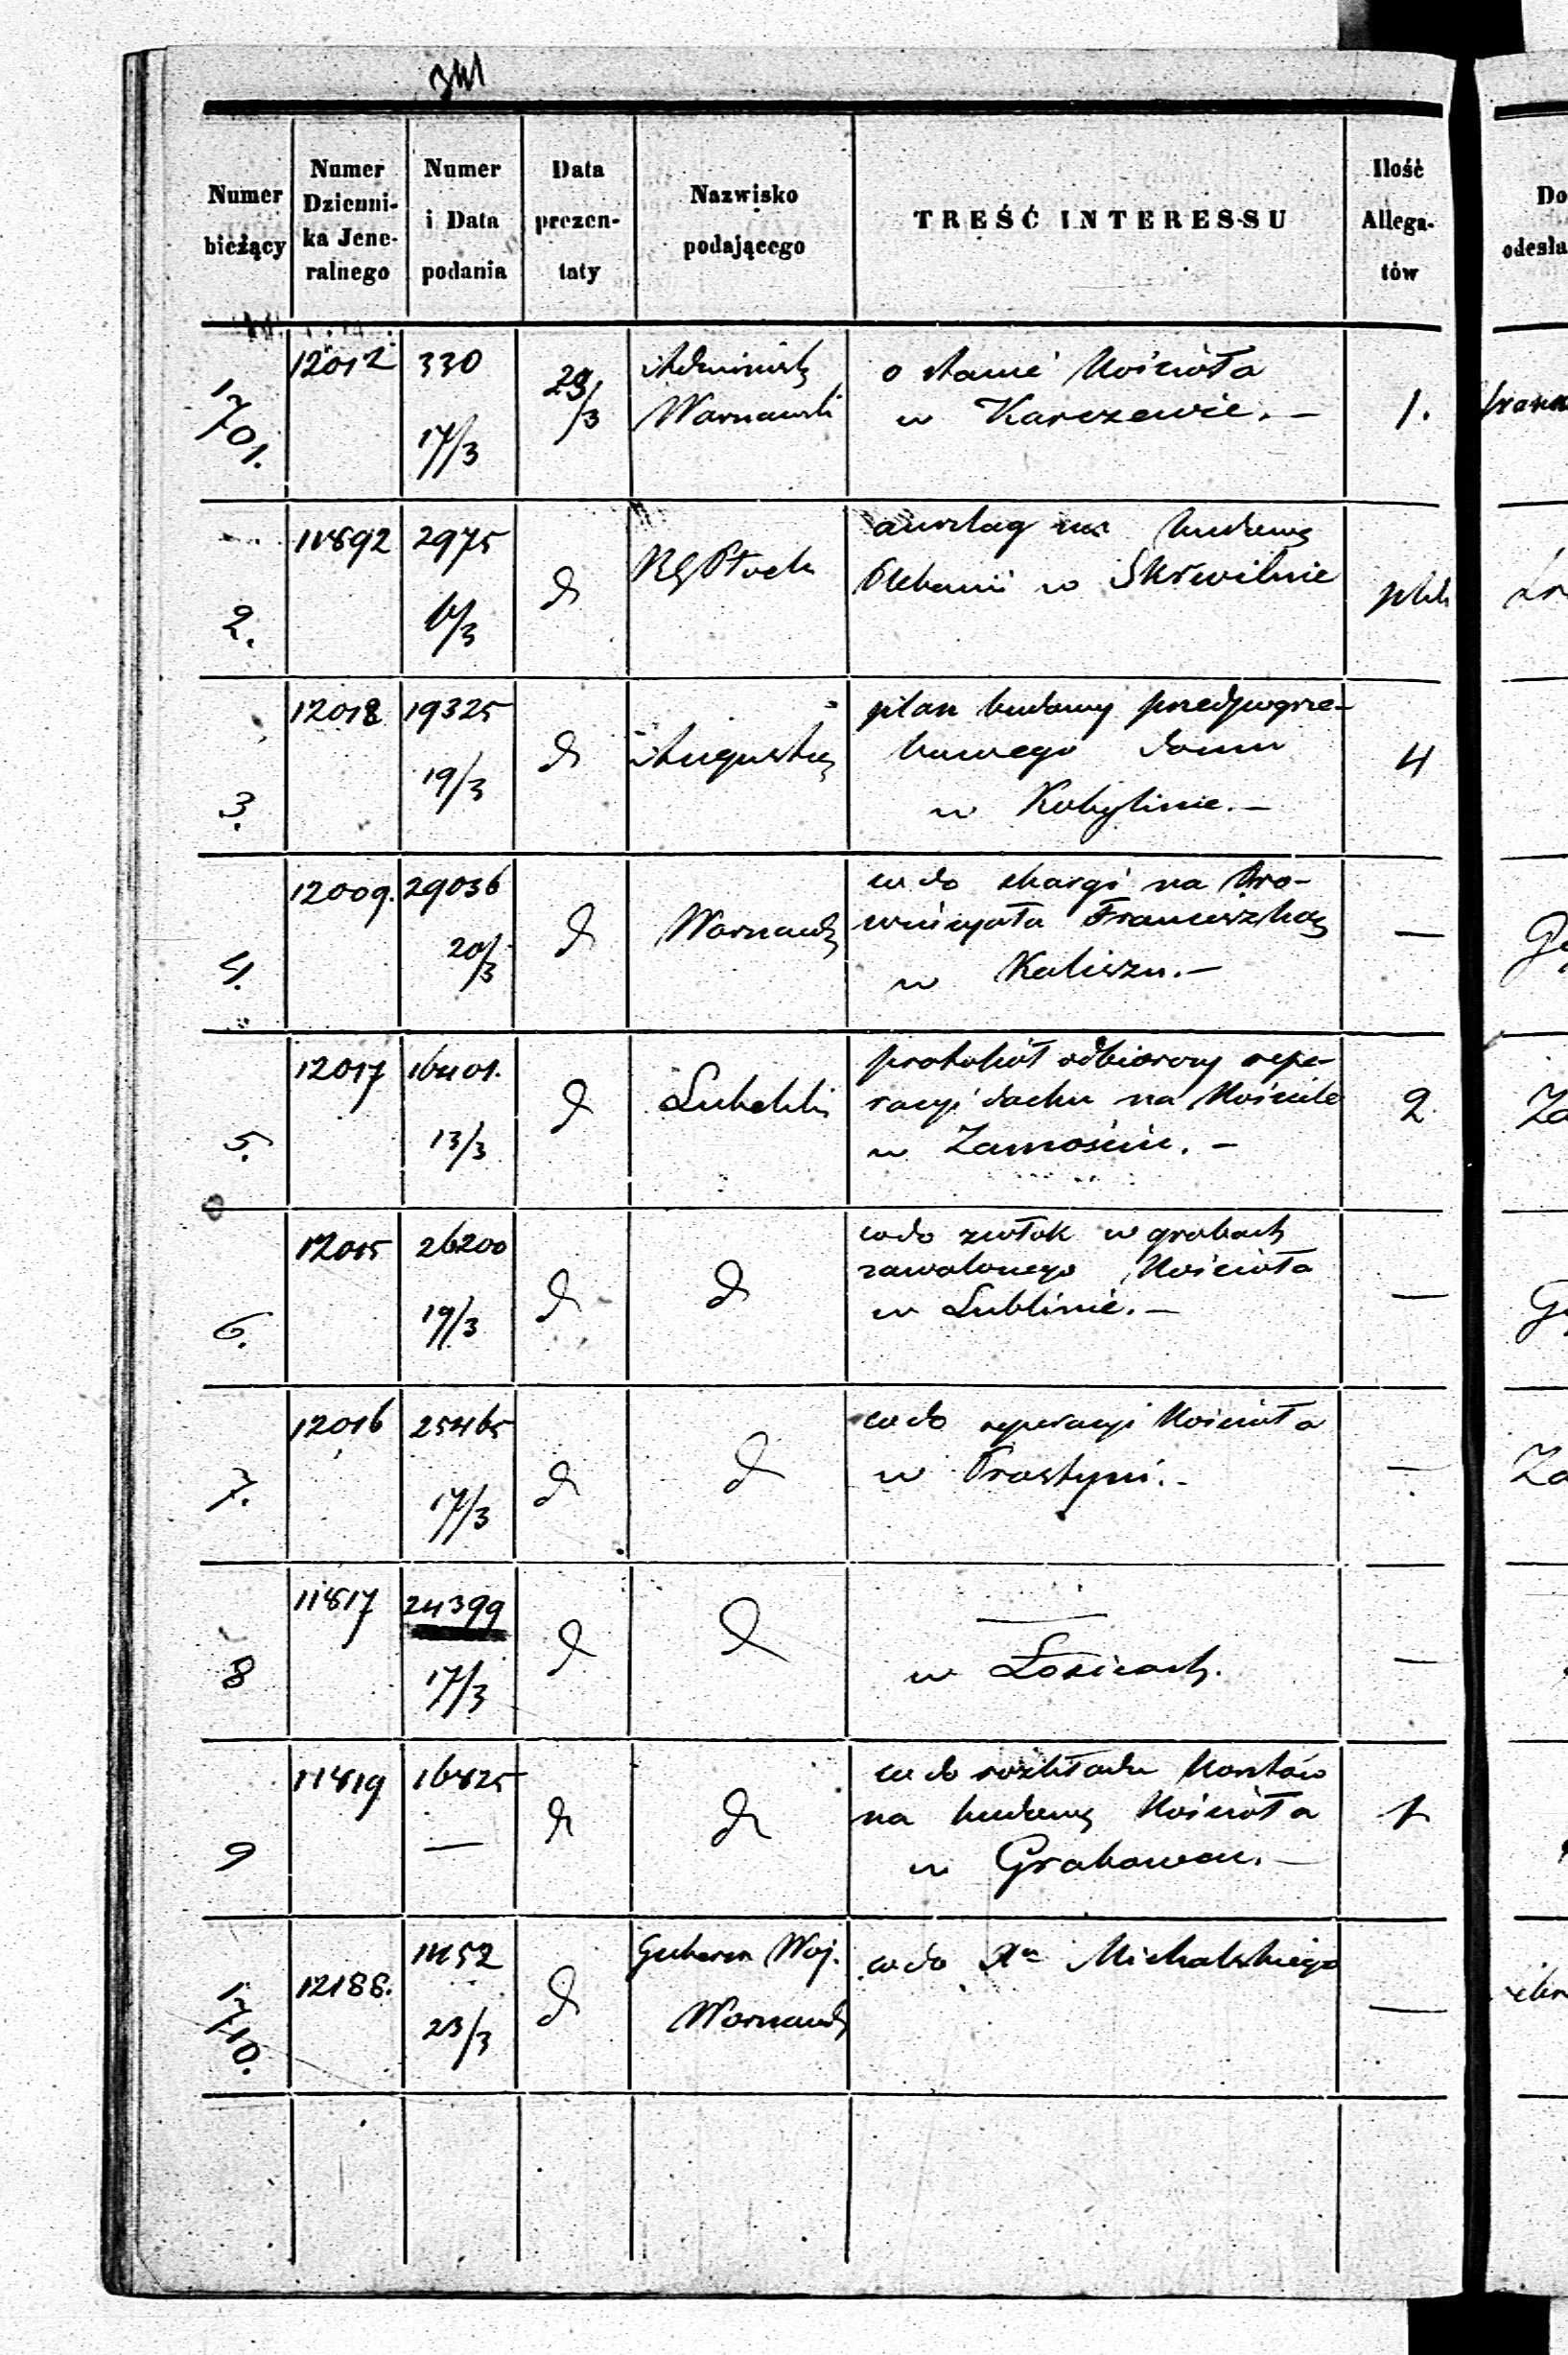 Numer bieżący | Numer Dzienni-ka Jene-ralnego | Numer i Data podania | Data prezen-taty | Nazwisko podającego | TREŚĆ INTERESSU | Ilość Allega-tów | Do odesła
1701. | 12012 | 330 17/3 | 29/3 | Administr Warszawski | o stanie Kościoła
w Karczewie. — | 1.
2. | 11892 | 2975 | d | RG Płock | anszlag na budowę
Plebanii w Skrwilnie
3. | 12018 | 19325 19/3 | d | Augustow | plan budowy przedpogrze-
bowego domu
w Kobylinie. — | 4
4. | 12009. | 29036 20/3 | d | Warszaws | co do skargi na Pro-
wincyała Franciszka
w Kaliszu. — | —
5. | 12017 | 16401. 13/3 | d | Lubelski | protokół odbiorczy repe-
racyi dachu na Kościele
w Zamościu. — | 2
6. | 12015 | 26200 19/3 | d | d | co do zwłok w grobach
zawalonego Kościoła
w Lublinie. — | —
7. | 12016 | 25465 17/3 | d | d | co do reperacyi Kościoła
w Prostyni. - | —
8 | 11817 | 24399 17/3 | d | d | —
w Łosicach. | —
9 | 11819 | 16825 — | d | d | co do rozkładu kosztów
na budowę Kościoła
w Grabowcu. — | 1
1710. | 12188. | 23/3 | d | Guberna Woj. Warszaws | co do Xa Michalskiego | —